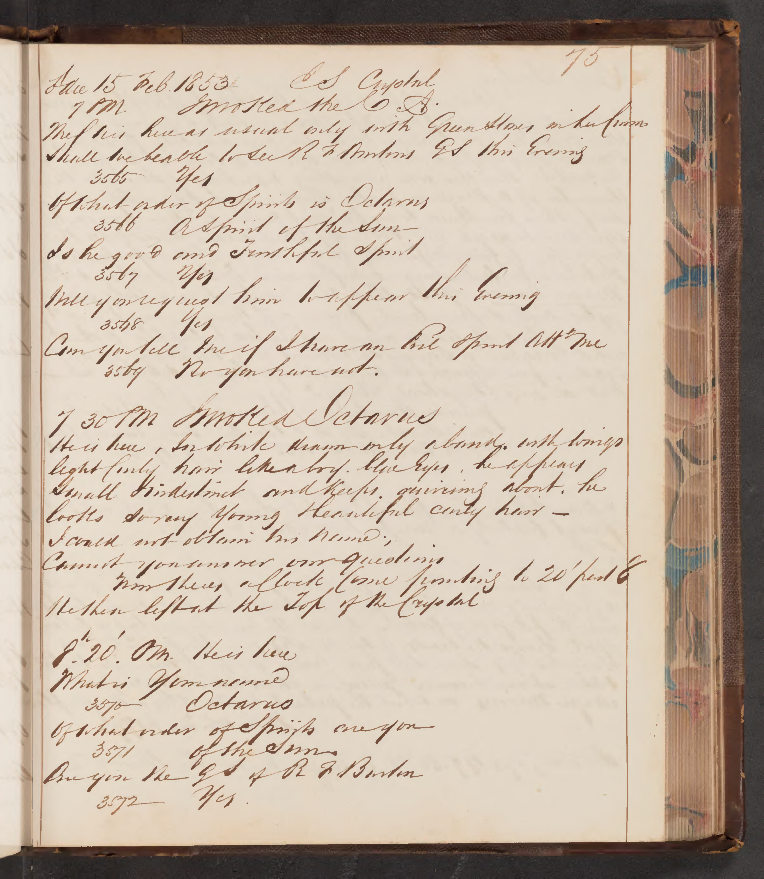 75
Tue 15 Feb 1853 E S Crystal
7 PM Invoked the C A.
The C is here as usual only with Green Stones in her Crown
Shall we be able to see R F Burtons GS this Evening
3565 Yes
Of what order of Spirits is Octavus
3566 A Spirit of the Sun
Is he good and Truthful Spirit
3567 Yes
Will you request him to appear this Evening
3568 Yes
Can you tell me if I have an Evil Spirit Att'd me
3569 No you have not.
7 30 PM Invoked Octavus
He is here, In White drawn only a band, with wings
light Curly hair like a boy. blue Eyes. he appears
Small & indistinct and keeps quivering about. he
looks so very Young & beautiful curly hair —
I could not obtain his name.,
Cannot you answer our questions
Now theres a Clock Come pointing to 20' past 8
He then left at the Top of the Crystal
8h. 20'. PM. He is here
What is Your name
3570 Octavus
Of what order of Spirits are you
3571 of the Sun.
Are you the GS of R F Burton
3572 Yes.